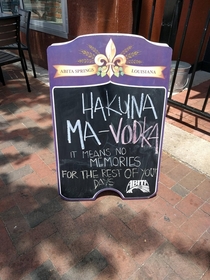 ABITA SPRINGS LOUISIANA
HAKUNA
MA-VODKA
IT MEANS NO
MEMORIES
FOR THE REST OF YOUR
DAYS
Abita